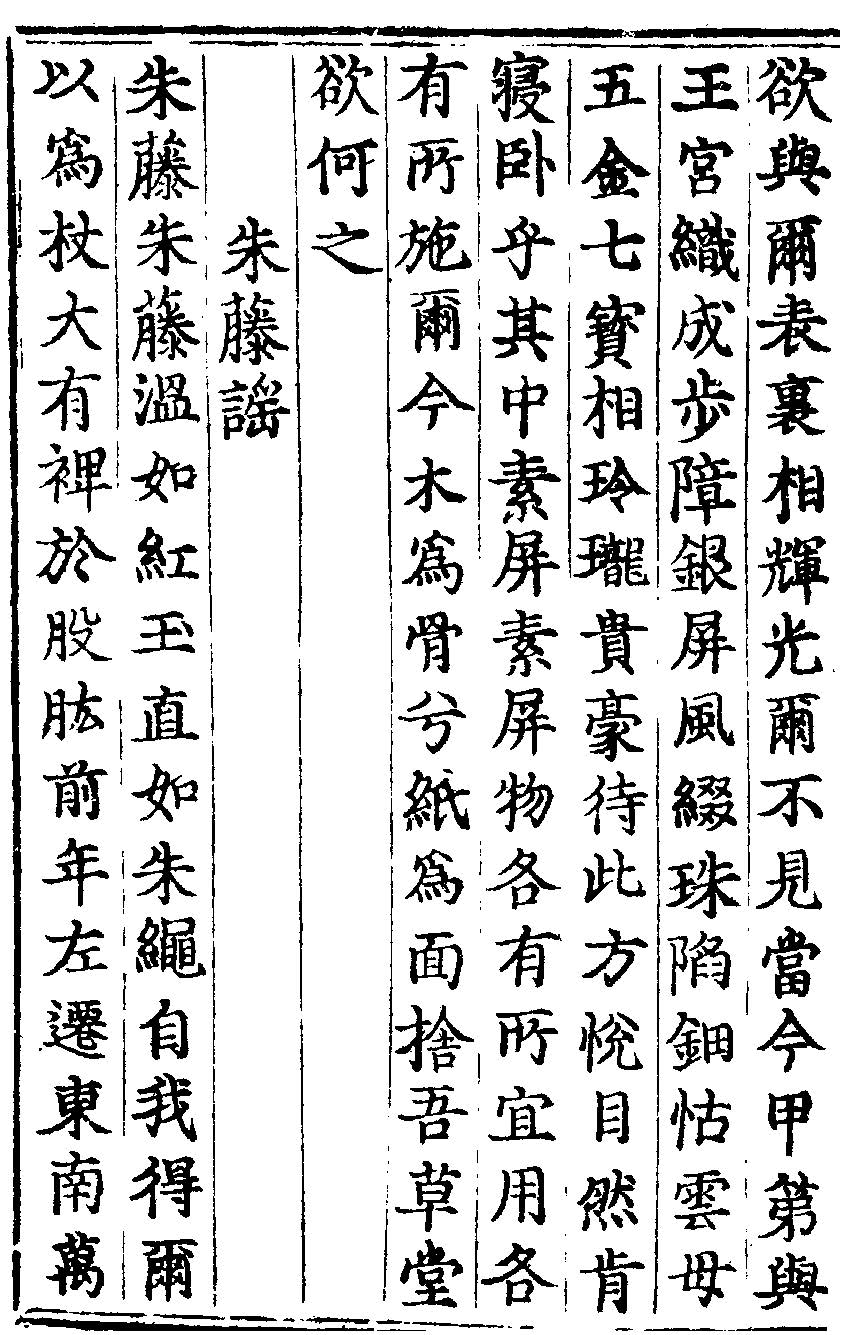 欲與爾表裏相輝光爾不見當今甲第與
王宮織成步障銀屏風綴珠陷鈿怗雲母
五金七寳相玲瓏貴豪待此方恱目然肯
寝卧乎其中素屏素屏物各有所宜用各
有所施爾今木爲骨兮紙爲面捨吾草堂
欲何之
朱藤謡
朱藤朱藤溫如紅玉直如朱繩自我得爾
以爲杖大有裨於股肱前年左遷東南萬